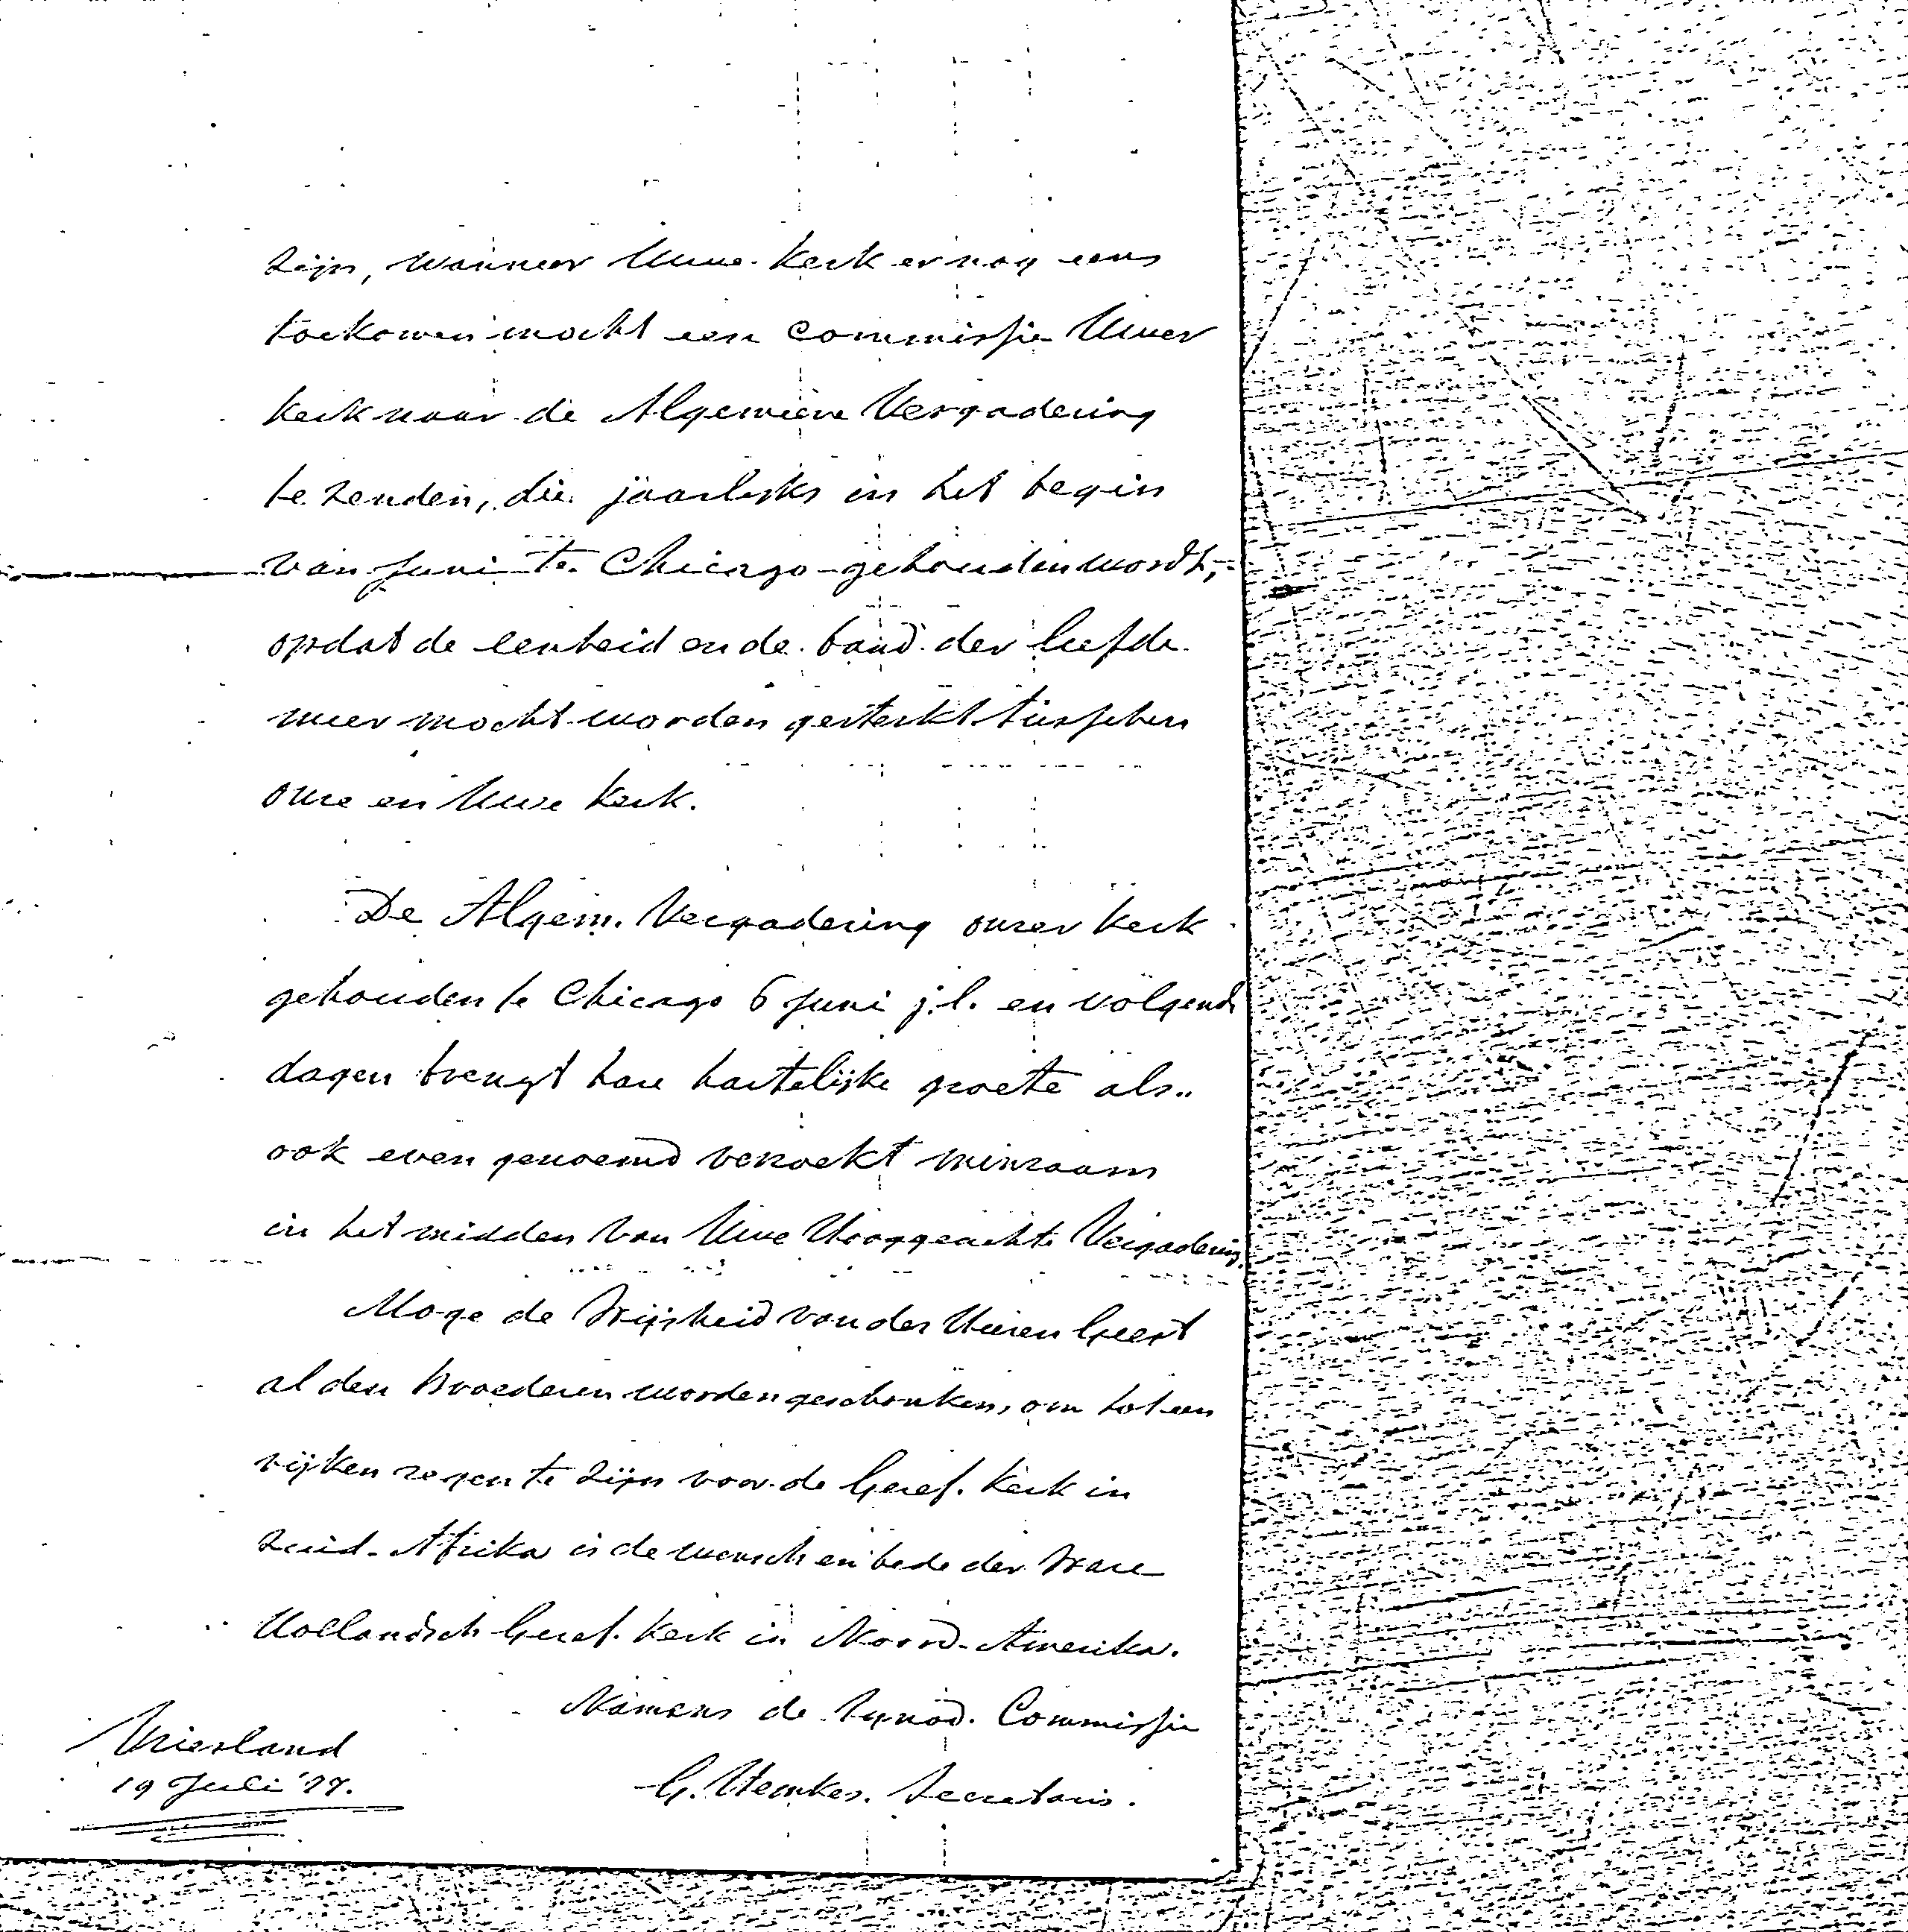 zijn, wanneer Uwe Kerk er nog eens
toekomen mocht een commissie Uwer
Kerk naar de Algemeene Vergadering
te zenden, die jaarlijks in het begin
van Juni te Chicago gehouden wordt,
opdat de eenheid en de band der liefde
meer mocht worden gesterkt tusschen
onze en Uwe Kerk.
De Algem. Vergadering onzer Kerk
gehouden te Chicago 6 Juni j.l. en volgende
dagen brengt hare hartelijke groete als
ook even genoemd verzoekt minzaam
in het midden van Uwe Hooggeachte Vergadering.
Moge de Wijsheid van den Heiren Geest
al den Broederen worden geschonken, om tot een
rijken zegen te zijn voor de Geref. Kerk in
Zuid-Afrika is de wensch en bede der Ware
Hollandsch Geref. Kerk in Noord-Amerika.
Namens de Synod. Commissie
Vriesland
19 Juli '77.
G. Hemkes. Secretaris.